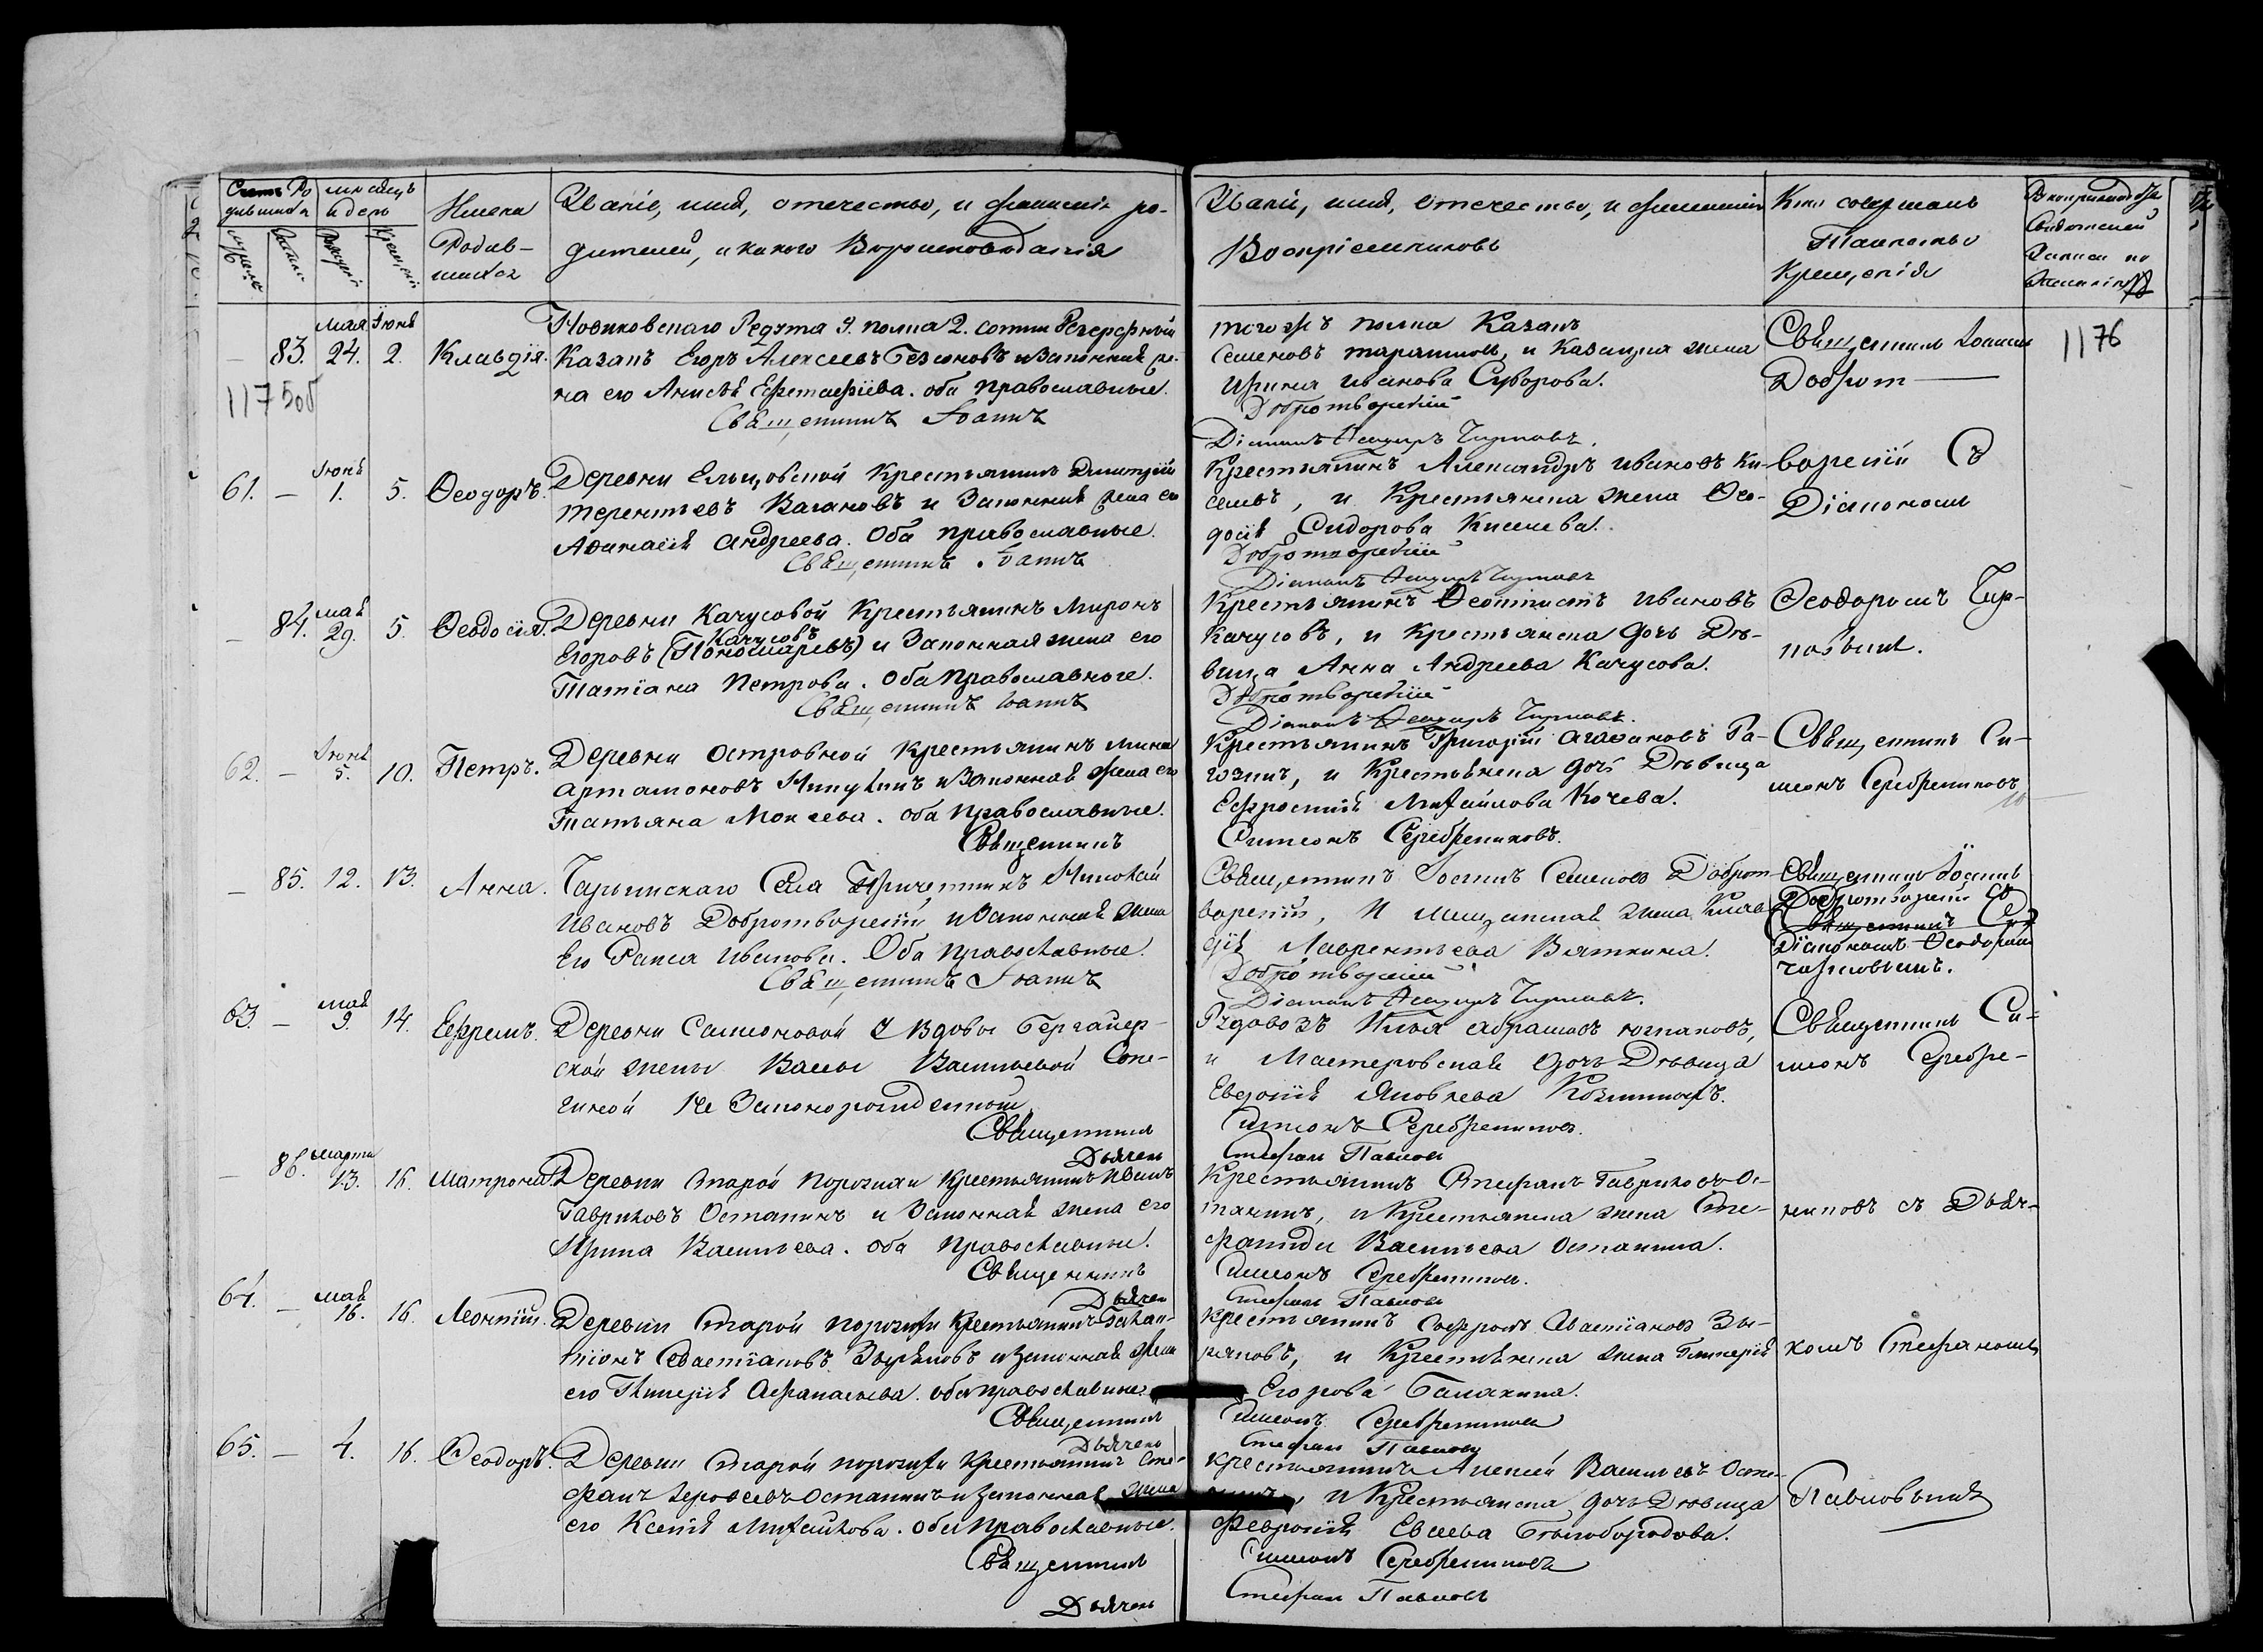 Счетъ Ро
дившихся
мѣсяцъ
и день
Имена
Родив-
шихся
Званіе, имя, отечество, и фамилія ро-
дителей, и какого Вѣроисповѣданія
83.
Мая 24.
Іюня 2.
Клавдія.
Новиковскаго Редута 9. полка 2. сотни Резервный
Казакъ Егоръ Алексеевъ и Законная же-
на его Анисья Евстафіева. оба православные.
Священникъ Іоаннъ
1175об
61.
Іюня 1.
5.
Ѳеодоръ.
Деревни Ельцовской Крестьянинъ Димитрій
Терентьевъ Вагановъ и Законная жена его
Аѳанасія Андреева. Оба православные.
Священникъ Іоаннъ
84.
Мая 29.
5.
Ѳеодосія.
Деревни Качусовой Крестьянинъ Миронъ
Качусовъ
Егоровъ (Пономаревъ) и Законная жена его
Татіана Петрова. Оба Православные.
Священникъ Іоаннъ
62.
Іюня 5.
10.
Петръ.
Деревни Островной Крестьянинъ Мина
Артамоновъ и Законная жена его
Татьяна Мокеева. оба православные.
Священникъ
85.
12.
13.
Анна.
Чарышскаго Села Причетникъ Николай
Ивановъ Добротворскій, и Законная жена
Его Раиса Иванова. Оба Православные.
Священникъ Іоаннъ
63.
Мая 9.
14.
Ефремъ.
Деревни Самсоновой У Вдовы Бергайер-
ской жены Вассы Васильевой
Не Законорожденный
Священникъ
Дьячекъ
86.
Марта 13.
16.
Матрона.
Деревни Старой порозихи Крестьянинъ
Гавриловъ Останинъ и Законная жена его
Ирина Васильева. оба Православные.
Священникъ
Дьячекъ
64.
Мая 16.
16.
Леонтій.
Деревни Старой порозихи Крестьянинъ Галак-
тіонъ Севастіановъ Зыряновъ и Законная жена
его Гликерія Афанасьева. оба православные.
Священникъ
Дьячекъ
65.
4.
16.
Ѳеодоръ.
Деревни Старой порозихи Крестьянинъ Сте-
фанъ Іеровеевъ Останинъ и Законная жена
его Ксенія Михайлова. оба Православные.
Священникъ
Дьячекъ
Званіе, имя, отечество, и фамилія
Воспріемниковъ
Кто совершалъ
Таинство
Крещенія
того жъ полка Казакъ
Семеновъ, и Казачья жена
Ирина Иванова Суворова.
Добротворскій
Діаконъ Ѳеодоръ Чирковъ.
Священникъ Іоаннъ
Доброт
1176
Крестьянинъ Александръ Ивановъ Ки-
селевъ, и Крестьянска жена Ѳео-
досія Сидорова Киселева.
Добротворскій
Діаконъ Ѳеодоръ Чирковъ
ворскій Съ
Діакономъ
Крестьянинъ Ѳеоктистъ Ивановъ
Качусовъ, и Крестьянска дочь Дѣ-
вица Анна Андреева Качусова.
Добротворскій
Діаконъ Ѳеодоръ Чирковъ.
Ѳеодоромъ Чир-
ковымъ.
Крестьянинъ Григорій Агафоновъ Ра-
гозинъ, и Крестьянска дочь Дѣвица
Ефросинія Михайлова Кочева.
Симеонъ Серебрениковъ.
Священникъ Си-
меонъ Серебрениковъ
Священникъ Іоаннъ Семеновъ Доброт-
ворскій, и Мещанская жена Клав-
дія Лаврентьева Вяткина.
Добротворскій
Діаконъ Ѳеодоръ Чирковъ.
Священникъ Іоаннъ
Добротворскій Съ
Діакономъ Ѳеодоромъ
Чирковымъ.
Илья Абрамовъ,
и Мастеровская дочь Дѣвица
Евдокія Яковлева
Симеонъ Серебрениковъ.
Стефанъ Павловъ
Священникъ Си-
меонъ Серебре-
Крестьянинъ Стефанъ Гавриловъ Ос-
танинъ, и Крестьянска жена Сте-
фанида Васильева Останина.
Симеонъ Серебрениковъ.
Стефанъ Павловъ
никовъ съ Дьяч-
Крестьянинъ Софронъ Севастіановъ Зы-
ряновъ, и Крестьянска жена Гликерія
Егорова Балакина.
Симеонъ Серебрениковъ
Стефанъ Павловъ
комъ Стефаномъ
Крестьянинъ Алексѣй Васильевъ Оста-
нинъ, и Крестьянска дочь Дѣвица
Февронія Евсеева Бѣлобородова.
Симеонъ Серебрениковъ
Стефанъ Павловъ
Павловымъ